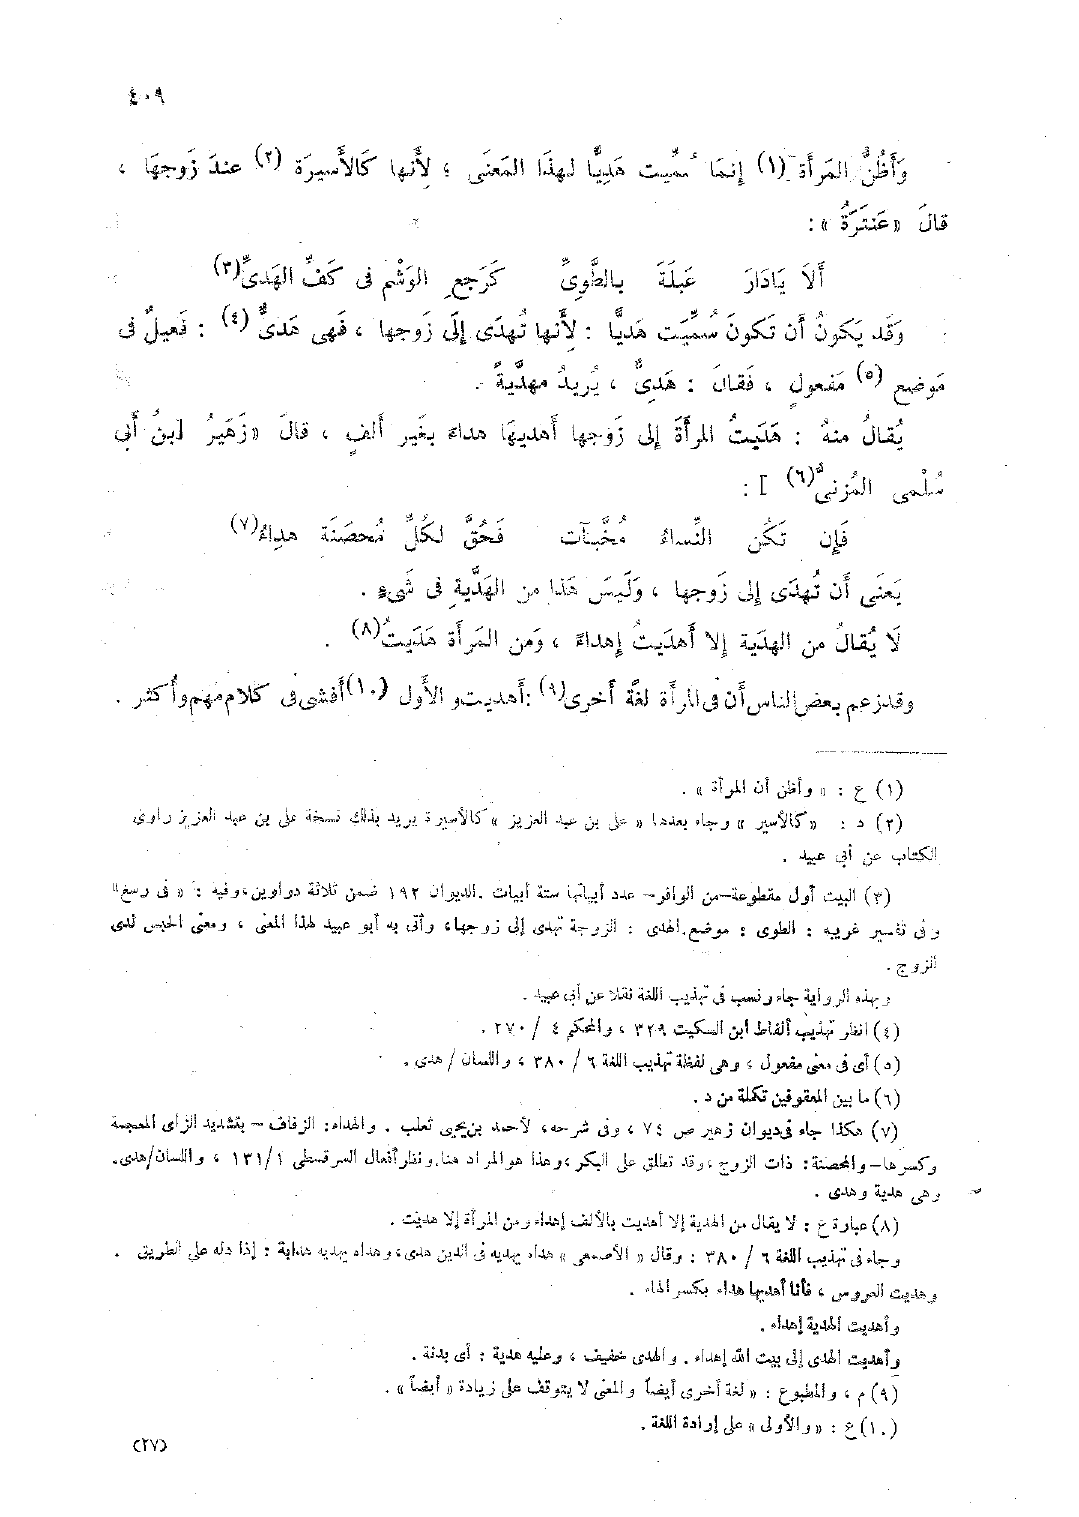 ٤٠٩
وَأَظُنُّ المَرأَة (١) إِنمَا سُمِّيت هَدِيًّا لهذَا المَعنَى ؛ لِأَنها كَالأَسيرَة (٢) عندَ زَوجهَا ،
قالَ « عَنتَرَةُ » :
أَلاَ يَادَارَ عَبلَةَ بالطَّوِىِّ كَرَجعِ الوَشْم فى كَفِّ الهَدىِّ(٣)
وَقَد يَكونُ أَن تَكونَ سُمِّيَت هَديًّا : لِأَنها تُهدَى إِلَى زَوجها ، فَهى هَدىٌّ (٤) : فَعيلٌ فى
مَوضع (٥) مَفعولٍ ، فَقالَ : هَدىٌّ ، يُريدُ مهديَّةً .
يُقالُ منهُ : هَدَيتُ المرأَةَ إِلى زَوجها أَهديهَا هداءً بغَير أَلفٍ ، قالَ « زُهَيرُ [ بنُ أَبى
سُلْمى المُزنىُّ(٦) ] :
فَإِن تَكُن النِّساءُ مُخَبَّآت فَحُقَّ لكُلِّ مُحصَنَة هداءُ(٧)
يَعنَى أَن تُهدَى إِلى زَوجها ، وَلَيسَ هَذا من الهَديَّةِ فى شَىءٍ .
لَا يُقالُ من الهديَة إلا أَهدَيتُ إِهداءً ، وَمن المَرأَة هَدَيتُ(٨) .
وقدزعم بعض الناس أَن فى المرأَة لغَة أُخرى(٩) : أَهديت والأَول (١٠) أَفشى فى كلامهم وأَكثر .
(١) ع : « وأظن أن المرأة » .
(٢) د : « كالأسير » وجاء بعدها « على بن عبد العزيز » كالأسيرة يريد بذلك نسخة على بن عبد العزيز راوى
الكتاب عن أبى عبيد .
(٣) البيت أول مقطوعة – من الوافر – عدد أبياتها ستة أبيات . الديوان ١٩٢ ضمن ثلاثة دواوين ، وفيه : « فى رسغ »
وفى تفسير غريبه : الطوى : موضع . الهدى : الزوجة تهدى إلى زوجها ، وأتى به أبو عبيد لهذا المعنى ، ومعنى الحبس لدى
الزوج .
وبهذه الرواية جاء ونسب فى تهذيب اللغة نقلا عن أبى عبيد .
(٤) انظر تهذيب ألفاظ ابن السكيت ٣٢٩ ، والمحكم ٤ / ٢٧٠ .
(٥) أى فى معنى مفعول ، وهى لفظة تهذيب اللغة ٦ / ٣٨٠ ، واللسان / هدى .
(٦) ما بين المعقوفين تكملة من د .
(٧) هكذا جاء فى ديوان زهير ص ٧٤ ، وفى شرحه ، لأحمد بن يحيى ثعلب . والهداء : الزفاف – بتشديد الزاى المعجمة
وكسرها – والمحصنة : ذات الزوج ، وقد تطلق على البكر ، وهذا هو المراد هنا . ونظر أفعال السرقسطى ١ / ١٣١ ، واللسان / هدى .
وهى هدية وهدى .
(٨) عبارة ع : لا يقال من الهدية إلا أهديت بالألف إهداء ومن المرأة إلا هديت .
وجاء فى تهذيب اللغة ٦ / ٣٨٠ : وقال « الأصمعى » هداه يهديه فى الدين هدى ، وهداه يهديه هداية : إذا دله على الطريق .
وهديت العروس ، فأنا أهديها هداء بكسر الهاء .
وأهديت الهدية إهداء .
وأهديت الهدى إلى بيت الله إهداء . والهدى خفيف ، وعليه هدية : أى بدنة .
(٩) م ، والمطبوع : « لغة أخرى أيضاً والمعنى لا يتوقف على زيادة « أيضاً » .
(١٠) ع : « والأولى » على إرادة اللغة .
(٢٧)